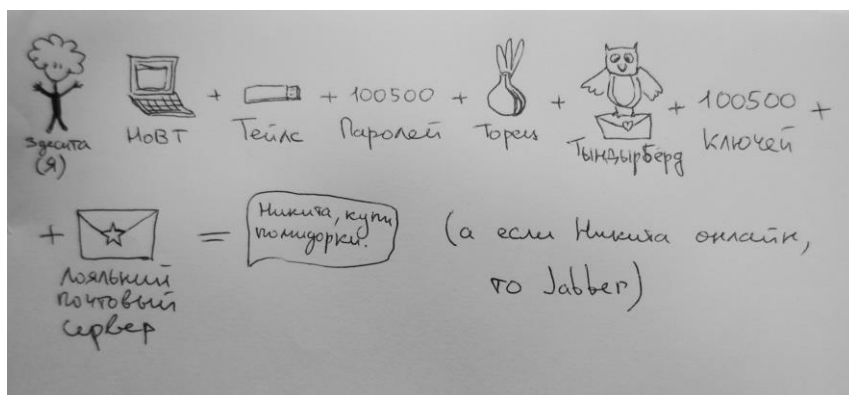 Здесита (Я)
НоВТ + Тейлс + 100500 Паролей + Торец + Тындырбёрд + 100500 Ключей +
+ Лояльний почтовый сервер = Никита, купи помидорки. (а если Никита онлайн, то Jabber)